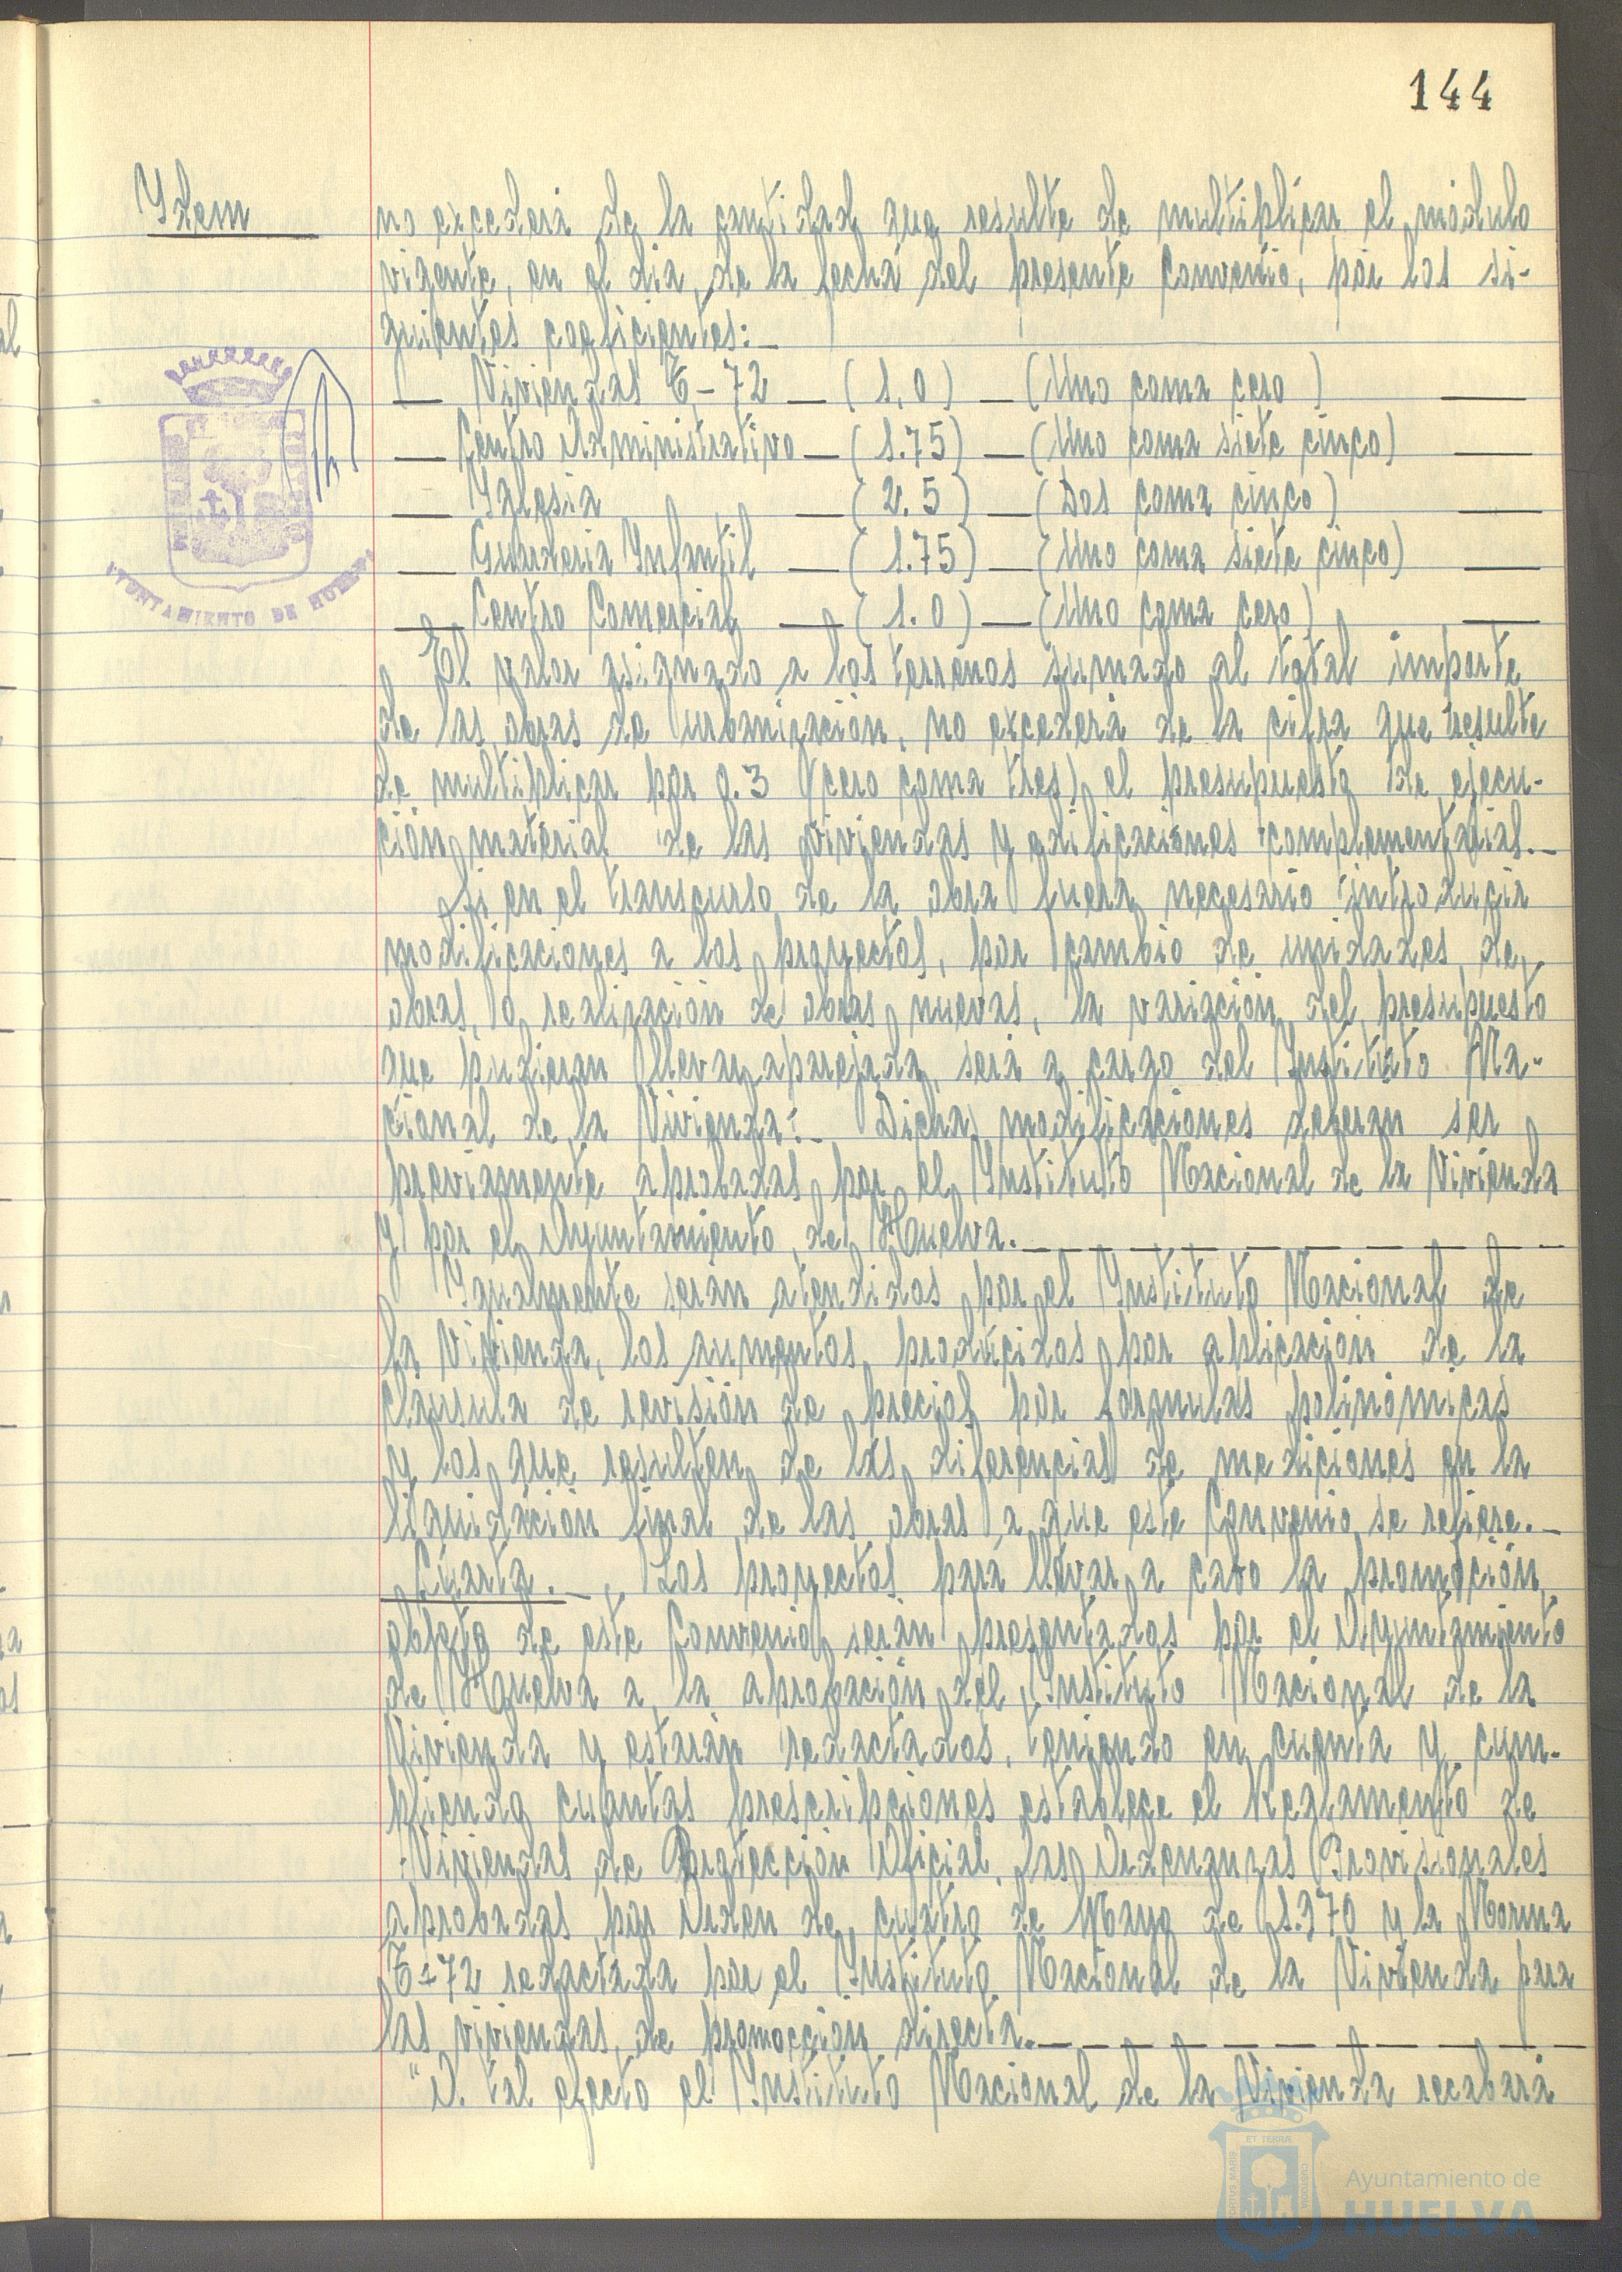 144
Idem
no excederá de la cantidad que resulte de multiplicar el módulo
vigente, en el dia, de la fecha del presente Convenio, por los si-
guientes coeficientes:_
— Viviendas T-72 — (1,0) — (Uno coma cero) —
— Centro Administrativo — (1.75) — (Uno coma siete cinco) —
— Iglesia — (2.5) — (Dos coma cinco) —
— Guarderia Infantil — (1.75) — (Uno coma siete cinco) —
— Centro Comercial — (1.0) — (Uno coma cero) —
AYUNTAMIENTO DE HUELVA
El valor asignado a los terrenos sumado al total importe
de las obras de urbanización, no excederá de la cifra que resulte
de multiplicar por 0.3 (cero coma tres) el presupuesto de ejecu-
ción material de las viviendas y edificaciones complementarias._
Si en el transcurso de la obra fuera necesario introducir
modificaciones a los proyectos, por cambio de unidades de
obras, o realización de obras nuevas, la variación del presupuesto
que pudieran llevar aparejada, será a cargo del Instituto Na-
cional de la Vivienda._ Dichas modificaciones deberan ser
previamente aprobadas por el Instituto Nacional de la Vivienda
y por el Ayuntamiento de Huelva._ _ _ _ _ _ _ _ _
Igualmente serán atendidos por el Instituto Nacional de
la Vivienda, los aumentos producidos por aplicación de la
clausula de revisión de precios por formulas polinómicas
y los que resulten de las diferencias de mediciones en la
liquidación final de las obras a que este Convenio se refiere._
Cuarta._ Los proyectos para llevar a cabo la promoción
objeto de este Convenio serán presentados por el Ayuntamiento
de Huelva a la aprobación del Instituto Nacional de la
Vivienda y estarán redactados, teniendo en cuenta y cum-
pliendo cuantas prescripciones establece el Reglamento de
Viviendas de Protección Oficial, las Ordenanzas Provisionales
aprobadas por Orden de cuatro de Mayo de 1.970 y la Norma
T-72 redactada por el Instituto Nacional de la Vivienda para
las viviendas de promocción directa._ _ _ _ _ _ _ _ _
"A tal efecto el Instituto Nacional de la Vivienda recabará
Ayuntamiento de
HUELVA